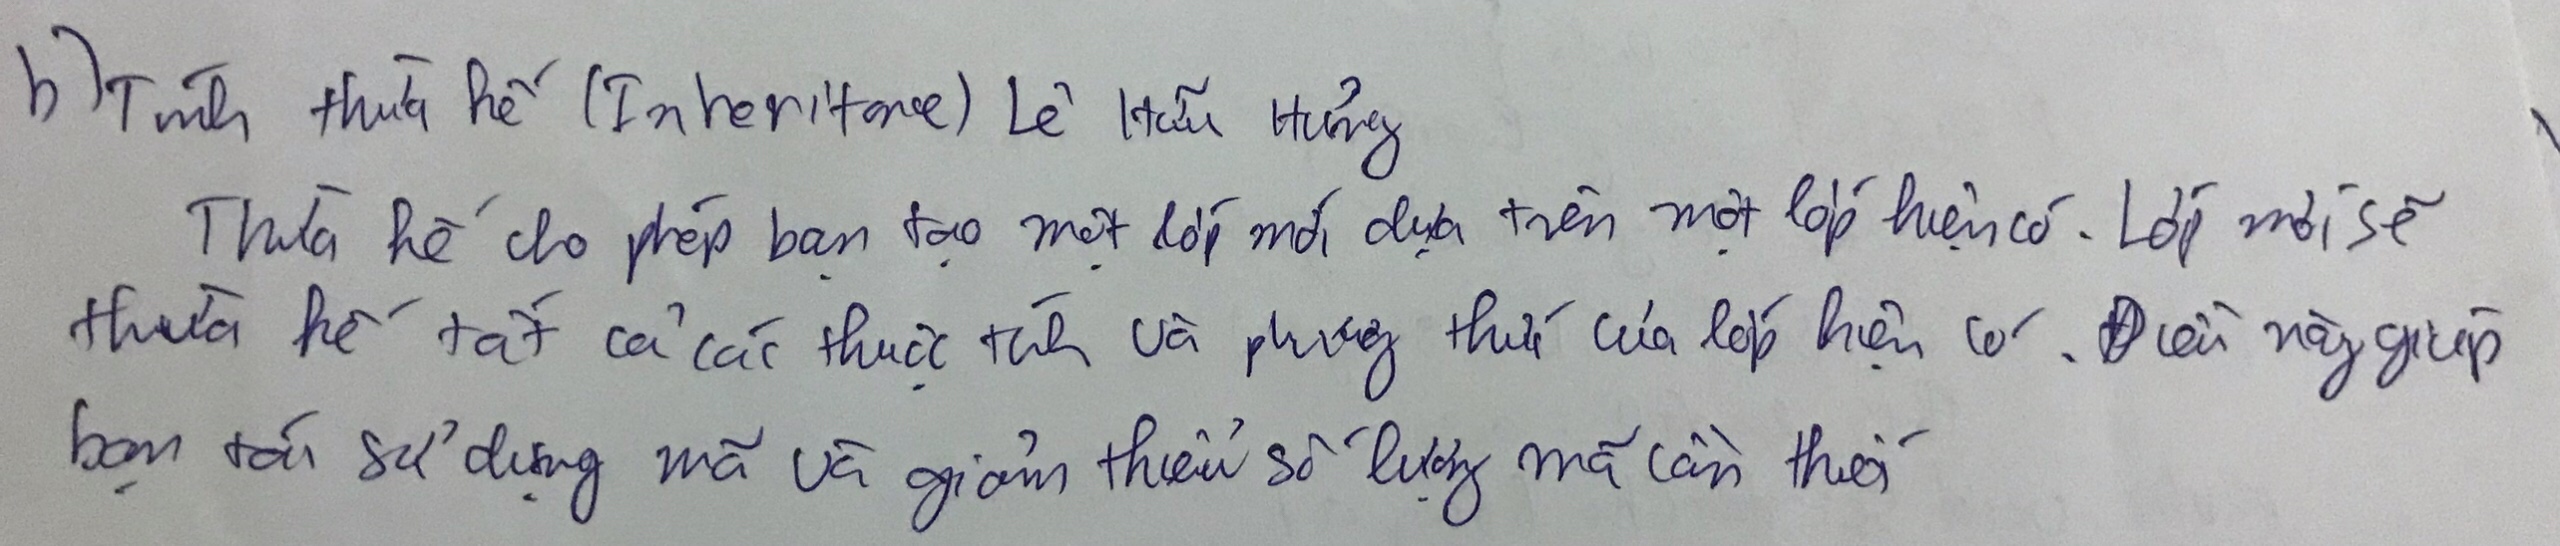 b) Tính thừa kế (Inheritance) Lê Hữu Hưởng
Thừa kế cho phép bạn tạo một lớp mới dựa trên một lớp hiện có. Lớp mới sẽ
thừa kế tất cả các thuộc tính và phương thức của lớp hiện có. Điều này giúp
bạn tái sử dụng mã và giảm thiểu số lượng mã cần thiết